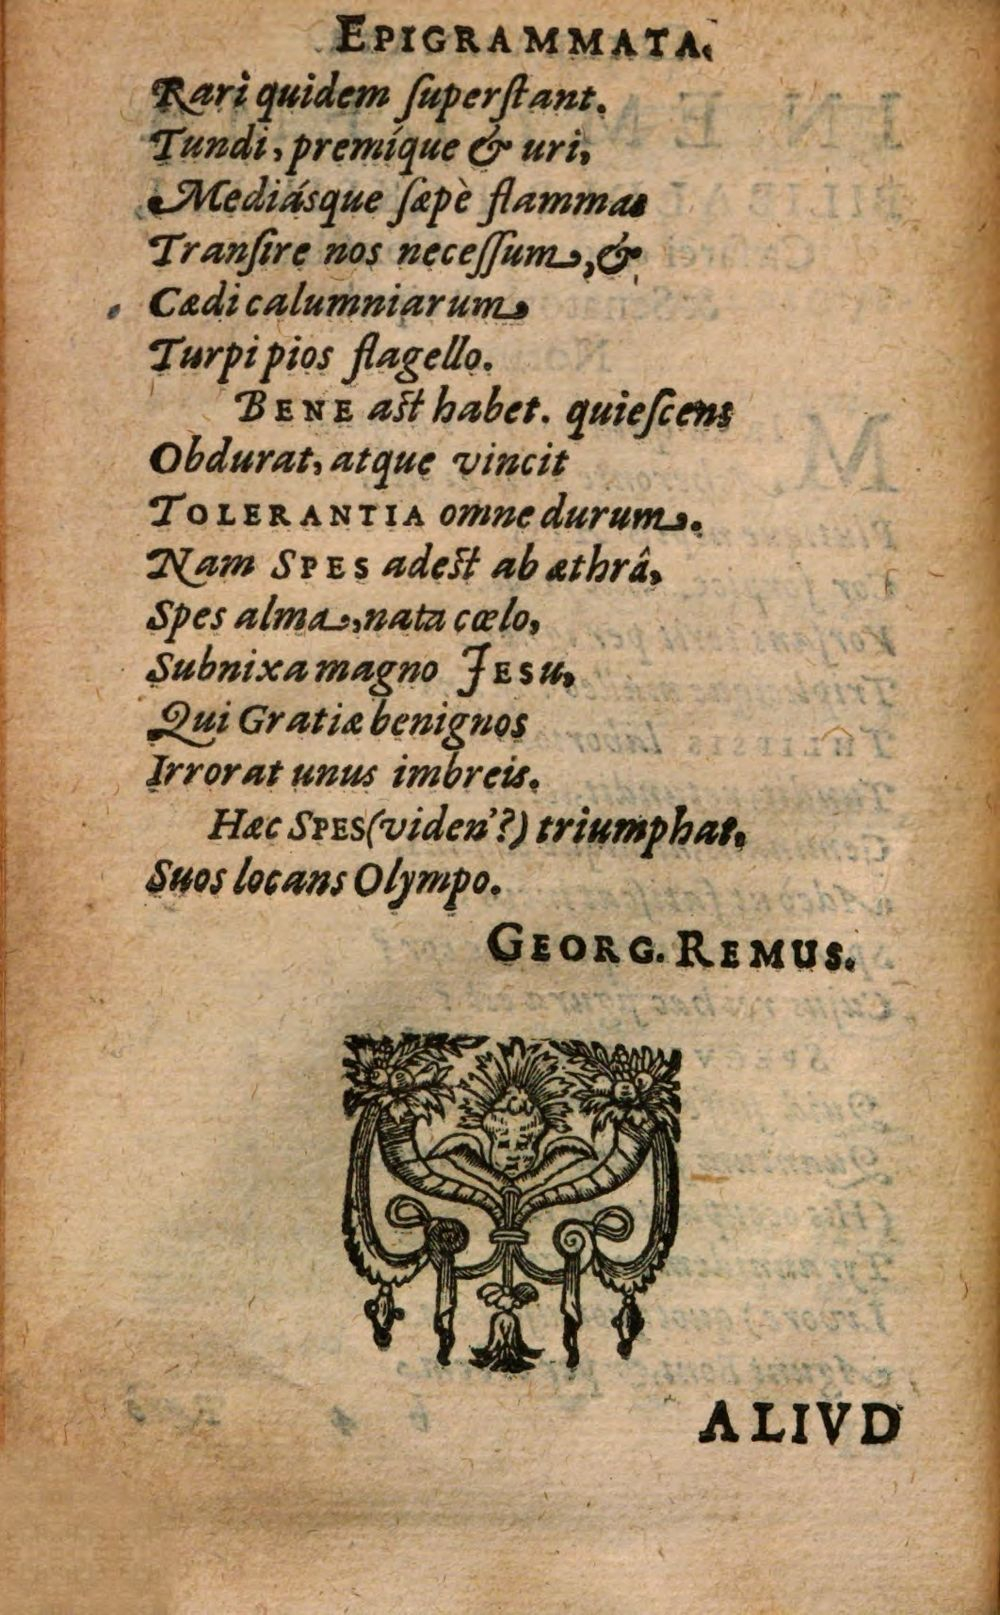 EPIGRAMMATA.
Rari quidem ſuperſtant.
Tundi, premíque & uri,
Mediásque ſæpè flammas
Tranſire nos neceſſum, &
Cædi calumniarum
Turpi pios flagello.
BENE aſt habet. quieſcens
Obdurat, atque vincit
TOLERANTIA omne durum.
Nam SPES adeſt ab æthrâ,
Spes alma, nata cœlo,
Subnixa magno JESU,
Qui Gratiæ benignos
Irrorat unus imbreis.
Hæc SPES (viden'?) triumphat,
Suos locans Olympo.
GEORG. REMUS.
ALIVD